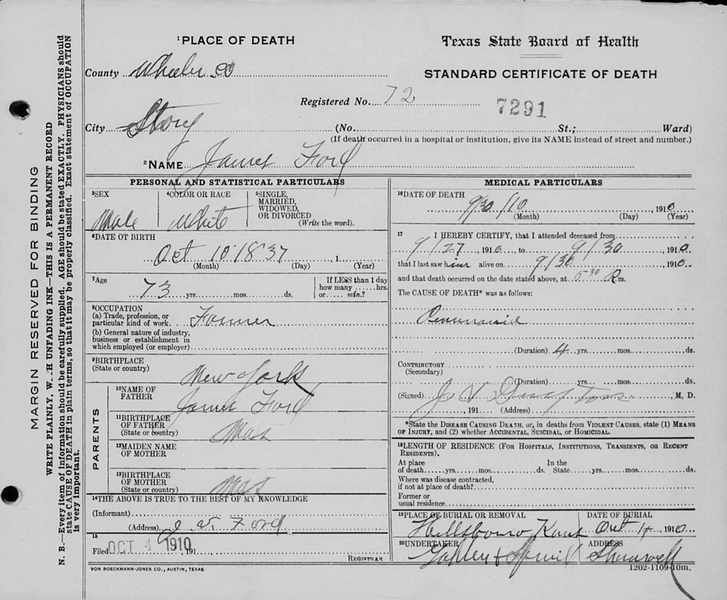 MARGIN RESERVED FOR BINDING
WRITE PLAINLY, W H UNFADING INK—THIS IS A PERMANENT RECORD
N. B.—Every item of information should be carefully supplied. AGE should be stated EXACTLY. PHYSICIANS should
state CAUSE OF DEATH in plain terms, so that it may be properly classified. Exact statement of OCCUPATION
is very important.
1 PLACE OF DEATH
Texas State Board of Health
County Wheeler Co
STANDARD CERTIFICATE OF DEATH
Registered No. 72
7291
City Story (No. St.; Ward)
(If death occurred in a hospital or institution, give its NAME instead of street and number.)
2 NAME James Ford
PERSONAL AND STATISTICAL PARTICULARS
3 SEX
Male
4 COLOR OR RACE
White
5 SINGLE,
MARRIED,
WIDOWED,
OR DIVORCED
(Write the word).
6 DATE OF BIRTH
Oct 10 1837, 1
(Month) (Day) (Year)
7 Age
73 yrs. mos. ds.
If LESS than 1 day
how many hrs.
or min.?
8 OCCUPATION
(a) Trade, profession, or
particular kind of work Farmer
(b) General nature of industry,
business or establishment in
which employed (or employer)
9 BIRTHPLACE
(State or country) New York
PARENTS
10 NAME OF
FATHER James Ford
11 BIRTHPLACE
OF FATHER
(State or country) Mas
12 MAIDEN NAME
OF MOTHER
13 BIRTHPLACE
OF MOTHER
(State or country) Mas
14 THE ABOVE IS TRUE TO THE BEST OF MY KNOWLEDGE
(Informant)
(Address) Ford
15
Filed OCT 4 1910, 191
REGISTRAR
VON BOECKMANN-JONES CO., AUSTIN, TEXAS
MEDICAL PARTICULARS
16 DATE OF DEATH
9/30/10 1910
(Month) (Day) (Year)
17 I HEREBY CERTIFY, that I attended deceased from
9/27 1910 to 9/30 1910
that I last saw him alive on 9/30 1910
and that death occurred on the date stated above, at 5 30 m.
The CAUSE OF DEATH* was as follows:
(Duration) 4 yrs. mos. ds.
CONTRIBUTORY
(Secondary)
(Duration) yrs. mos. ds.
(Signed) M, D.
, 191 (Address)
*State the DISEASE CAUSING DEATH, or, in deaths from VIOLENT CAUSES, state (1) MEANS
OF INJURY, and (2) whether ACCIDENTAL, SUICIDAL, or HOMICIDAL.
18 LENGTH OF RESIDENCE (FOR HOSPITALS, INSTITUTIONS, TRANSIENTS, OR RECENT
RESIDENTS).
At place
of death yrs. mos. ds.
In the
State yrs. mos. ds.
Where was disease contracted,
if not at place of death?
Former or
usual residence
19 PLACE OF BURIAL OR REMOVAL
Hillsboro Kans
DATE OF BURIAL
Oct 1910
20 UNDERTAKER
ADDRESS
Shamrock
1202-1109-10m.